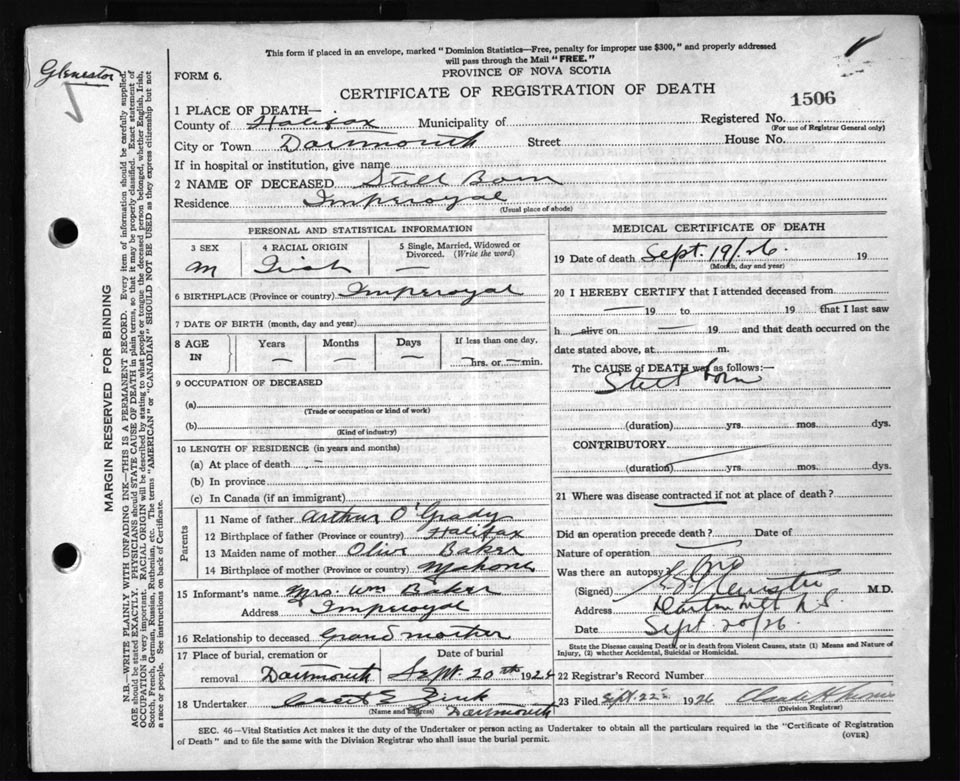 This form if placed in an envelope, marked "Dominion Statistics—Free, penalty for improper use $300," and properly addressed
will pass through the Mail "FREE."
FORM 6.
PROVINCE OF NOVA SCOTIA
CERTIFICATE OF REGISTRATION OF DEATH
1506
1 PLACE OF DEATH—
County of Halifax Municipality of
Registered No.
(For use of Registrar General only)
City or Town Dartmouth Street House No.
If in hospital or institution, give name
2 NAME OF DECEASED Still Born
Residence Imperoyal
(Usual place of abode)
PERSONAL AND STATISTICAL INFORMATION
3 SEX 4 RACIAL ORIGIN 5 Single, Married, Widowed or
Divorced. (Write the word)
M Irish —
6 BIRTHPLACE (Province or country) Imperoyal
7 DATE OF BIRTH (month, day and year)
8 AGE IN Years Months Days If less than one day,
— — — hrs. or — min.
9 OCCUPATION OF DECEASED
(a)
(Trade or occupation or kind of work)
(b)
(Kind of industry)
10 LENGTH OF RESIDENCE (in years and months)
(a) At place of death —
(b) In province
(c) In Canada (if an immigrant)
Parents
11 Name of father Arthur O'Grady
12 Birthplace of father (Province or country) Halifax
13 Maiden name of mother Olive Baker
14 Birthplace of mother (Province or country) Mahone
15 Informant's name Mrs. Wm Baker
Address Imperoyal
16 Relationship to deceased Grand mother
17 Place of burial, cremation or Date of burial
removal Dartmouth Sept. 20th 1926
18 Undertaker Zink
(Name and address) Dartmouth
MEDICAL CERTIFICATE OF DEATH
19 Date of death Sept. 19/.26. 19
(Month, day and year)
20 I HEREBY CERTIFY that I attended deceased from
— 19 to — 19 that I last saw
h alive on — 19 and that death occurred on the
date stated above, at m.
The CAUSE of DEATH was as follows:—
Still born
(duration) yrs. mos. dys.
CONTRIBUTORY
(duration) yrs. mos. dys.
21 Where was disease contracted if not at place of death?
Did an operation precede death? Date of
Nature of operation
Was there an autopsy? No
(Signed) M.D.
Address Dartmouth N.S.
Date Sept 20/26
State the Disease causing Death, or in death from Violent Causes, state (1) Means and Nature of
Injury, (2) whether Accidental, Suicidal or Homicidal.
22 Registrar's Record Number
23 Filed Sept. 22 1926
(Division Registrar)
SEC. 46—Vital Statistics Act makes it the duty of the Undertaker or person acting as Undertaker to obtain all the particulars required in the "Certificate of Registration
of Death" and to file the same with the Division Registrar who shall issue the burial permit.
(OVER)
MARGIN RESERVED FOR BINDING
N.B.—WRITE PLAINLY WITH UNFADING INK—THIS IS A PERMANENT RECORD. Every item of information should be carefully supplied.
AGE should be stated EXACTLY. PHYSICIANS should STATE CAUSE OF DEATH in plain terms, so that it may be properly classified. Exact statement of
OCCUPATION is very important. RACIAL ORIGIN will be described by stating to what people or tongue the deceased person belonged, whether English, Irish,
Scotch, French, German, Russian, Ruthenian, etc. The terms "AMERICAN" or "CANADIAN" SHOULD NOT BE USED as they express citizenship but not
a race or people. See instructions on back of Certificate.